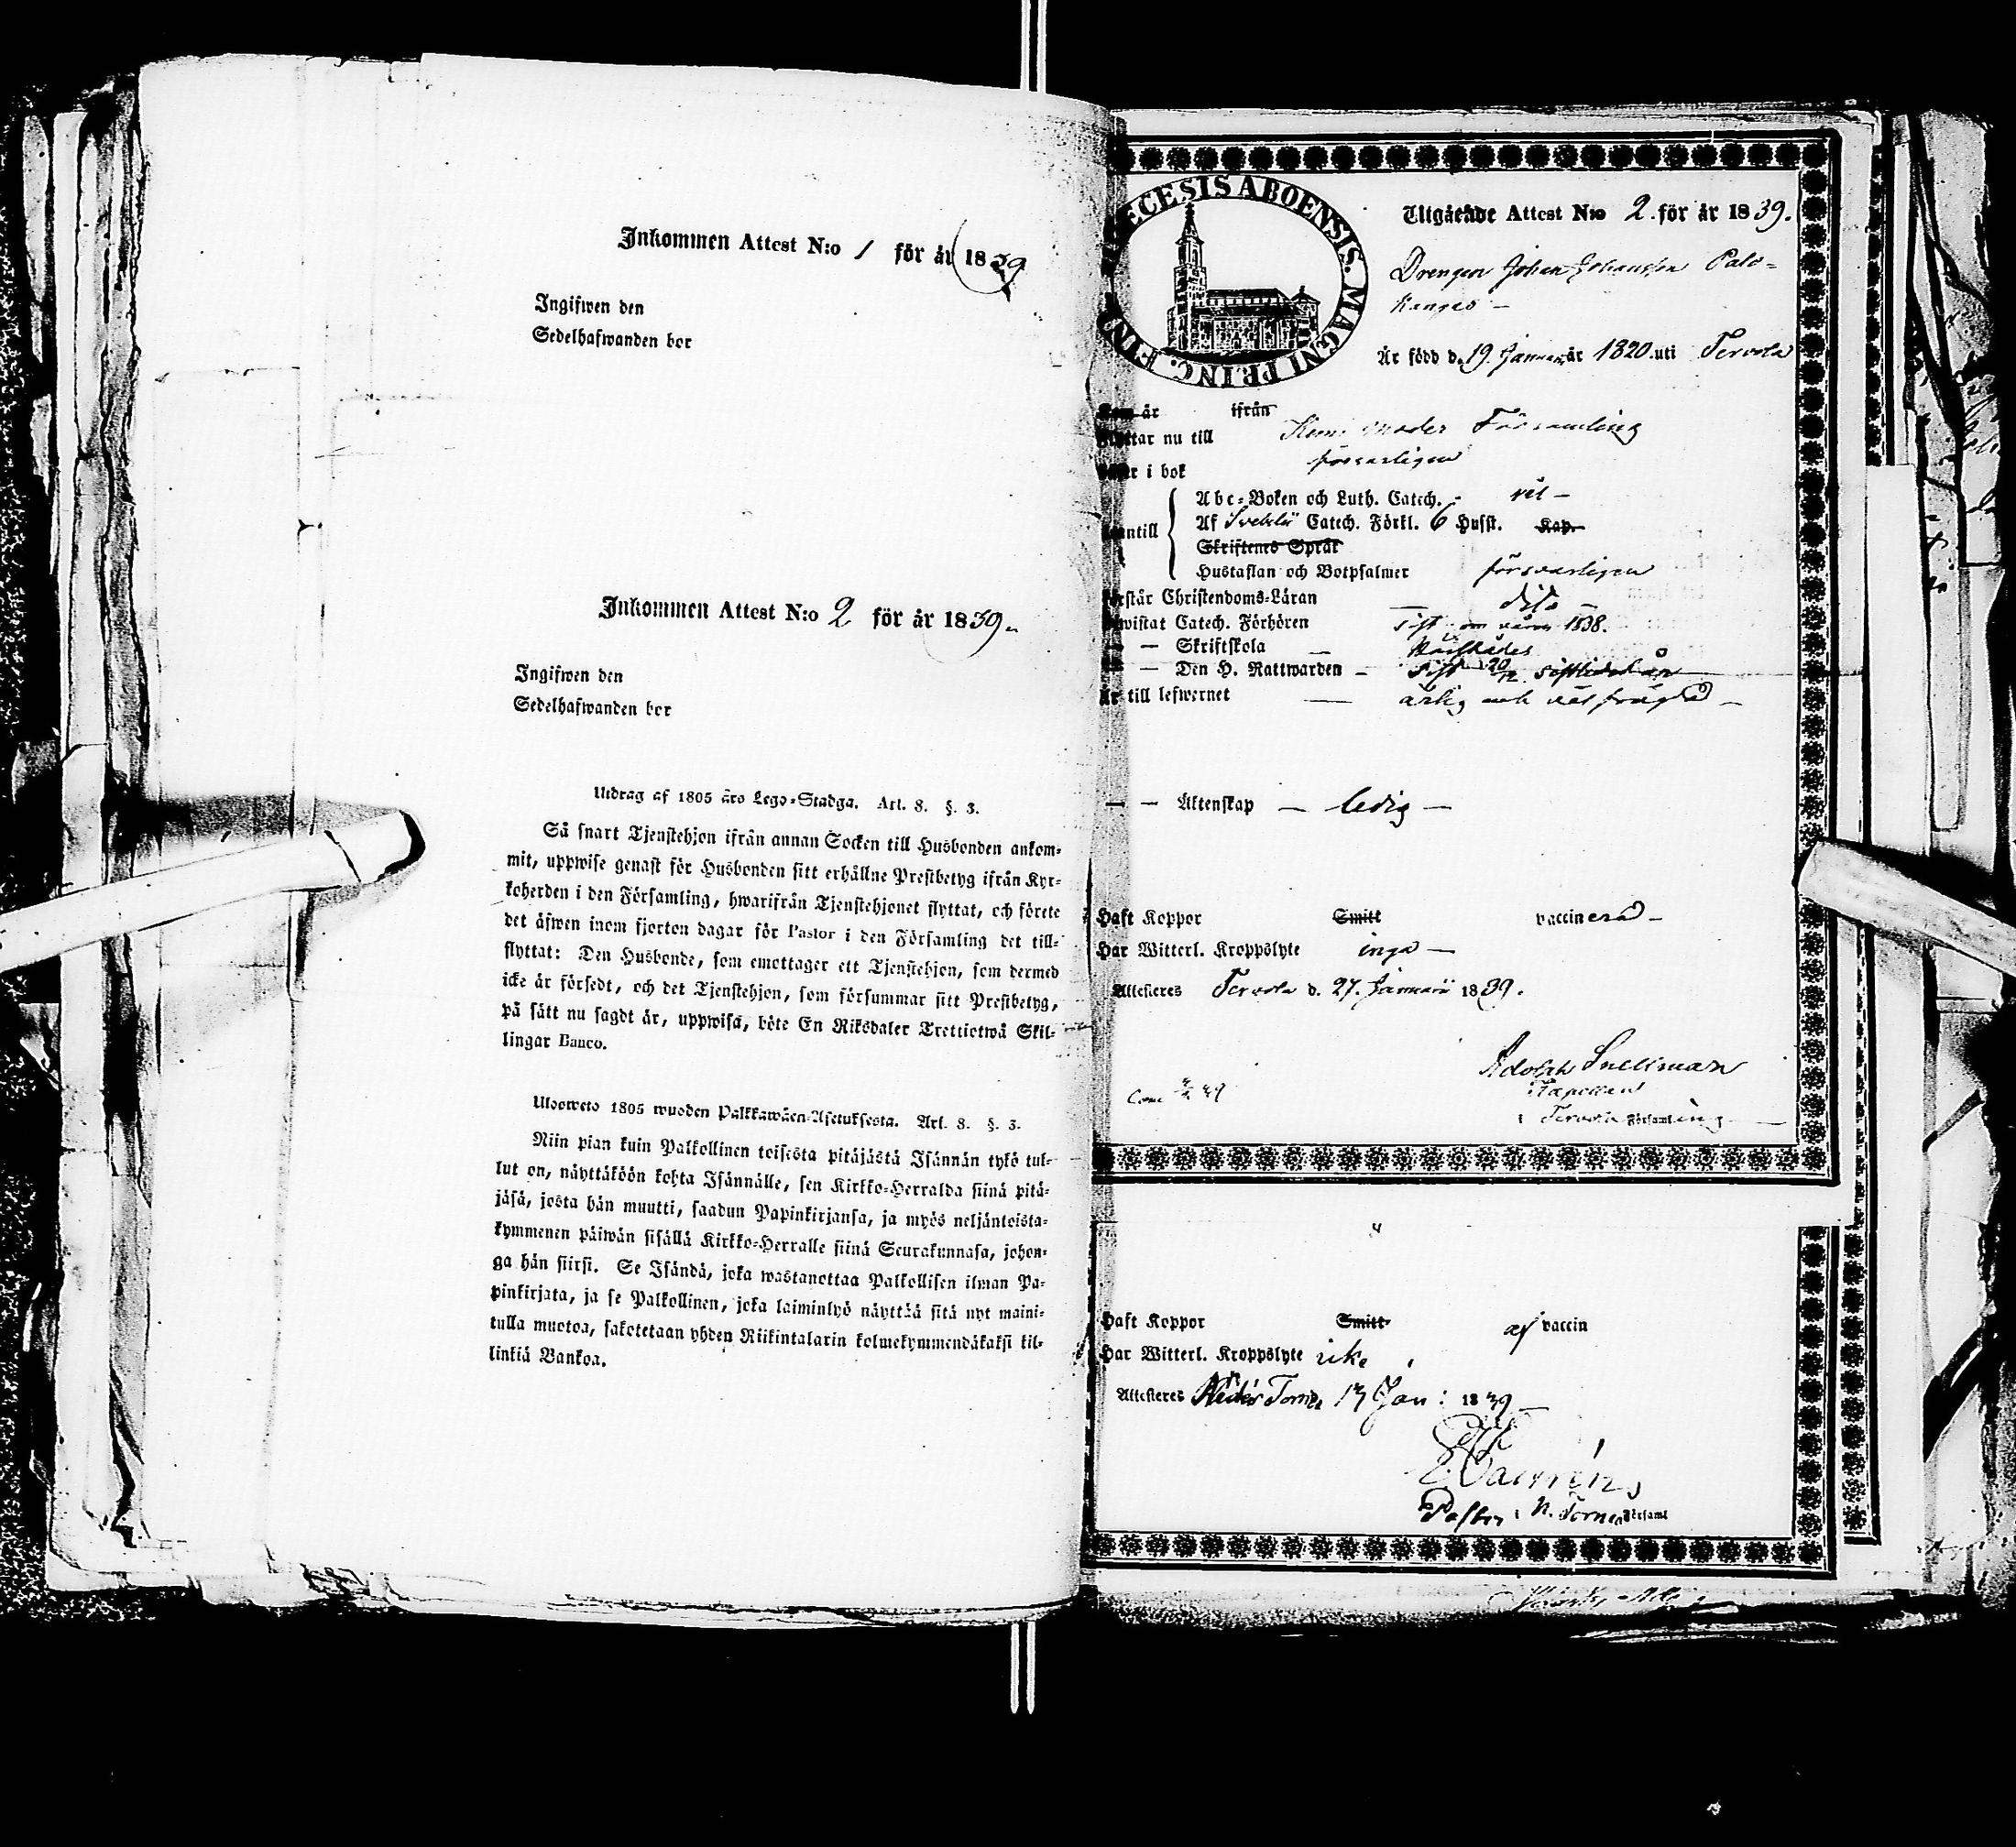 Inkommen Attest N:o 1 för år 1839
Ingifwen den
Sedelhafwanden bor
Inkommen Attest N:o 2 för år 1839.
Ingifwen den
Sedelhafwanden bor
Utdrag af 1805 års Lego-Stadga. Art. 8. §. 3.
Så snart Tjenstehjon ifrån annan Socken till Husbonden ankom-
mit, uppwise genast för Husbonden sitt erhållne Prestbetyg ifrån Kyr-
koherden i den Församling, hwarifrån Tjenstehjonet flyttat, och förete
det äfwen inom fjorton dagar för Pastor i den Församling det till-
flyttat: Den Husbonde, som emottager ett Tjenstehjon, som dermed
icke är försedt, och det Tjenstehjon, som försummar sitt Prestbetyg,
på sätt nu sagdt är, uppwisa, böte En Riksdaler Trettiotwå Skil-
lingar Banco.
Ulosweto 1805 wuoden Palkkawäen-Asetuksesta. Art. 8. §. 3.
Niin pian kuin Palkollinen toisesta pitäjästä Isännän tykö tul-
lut on, näyttäköön kohta Isännälle, sen Kirkko-Herralda siinä pitä-
jäsä, josta hän muutti, saadun Papinkirjansa, ja myös neljäntoista-
kymmenen päiwän sisällä Kirkko-Herralle siinä Seurakunnasa, johon-
ga hän siirsi. Se Isändä, joka wastanottaa Palkollisen ilman Pa-
pinkirjata, ja se Palkollinen, joka laiminlyö näyttää sitä nyt maini-
tulla muotoa, sakotetaan yhden Riikintalarin kolmekymmendäkaksi kil-
linkiä Bankoa.
ECESIS ABOENSIS. MAGNI PRINC. FIN
Utgående Attest N:o 2. för år 1839.
Drengen Johan Johansson Palo-
kangas –
Är född d. 19. Januari år 1820. uti Tervola
Kom år ifrån
Flyttar nu till Kemi Moder Församling
Läser i bok försvarligen
Abc-Boken och Luth. Catech. - väl –
Utantill Af Svebelii Catech. Förkl. 6 Hufst. Kap.
Skriftenes Språk
Hustaflan och Botpsalmer försvarligen
Förstår Christendoms-Läran – dito –
Bewistat Catech. Förhören sist om våren 1838.
– – Skriftskola –
– – Den H. Nattwarden – sist d. 20/12 sistlidet år
Är till lefwernet — ärlig och väl frägdad –
– – Äktenskap – ledig –
Haft Koppor Smitt vaccinerad –
Har Witterl. Kroppslyte inga –
Attesteras Tervola d. 27. Januari 1839.
Adolph Snellman
Kapellan
i Tervola Församling. –
Haft Koppor Smitt af vaccin
Har Witterl. Kroppslyte icke
Attesteras Neder Torneå 13 Jan: 1839
Pastor i N. Torneå Församl